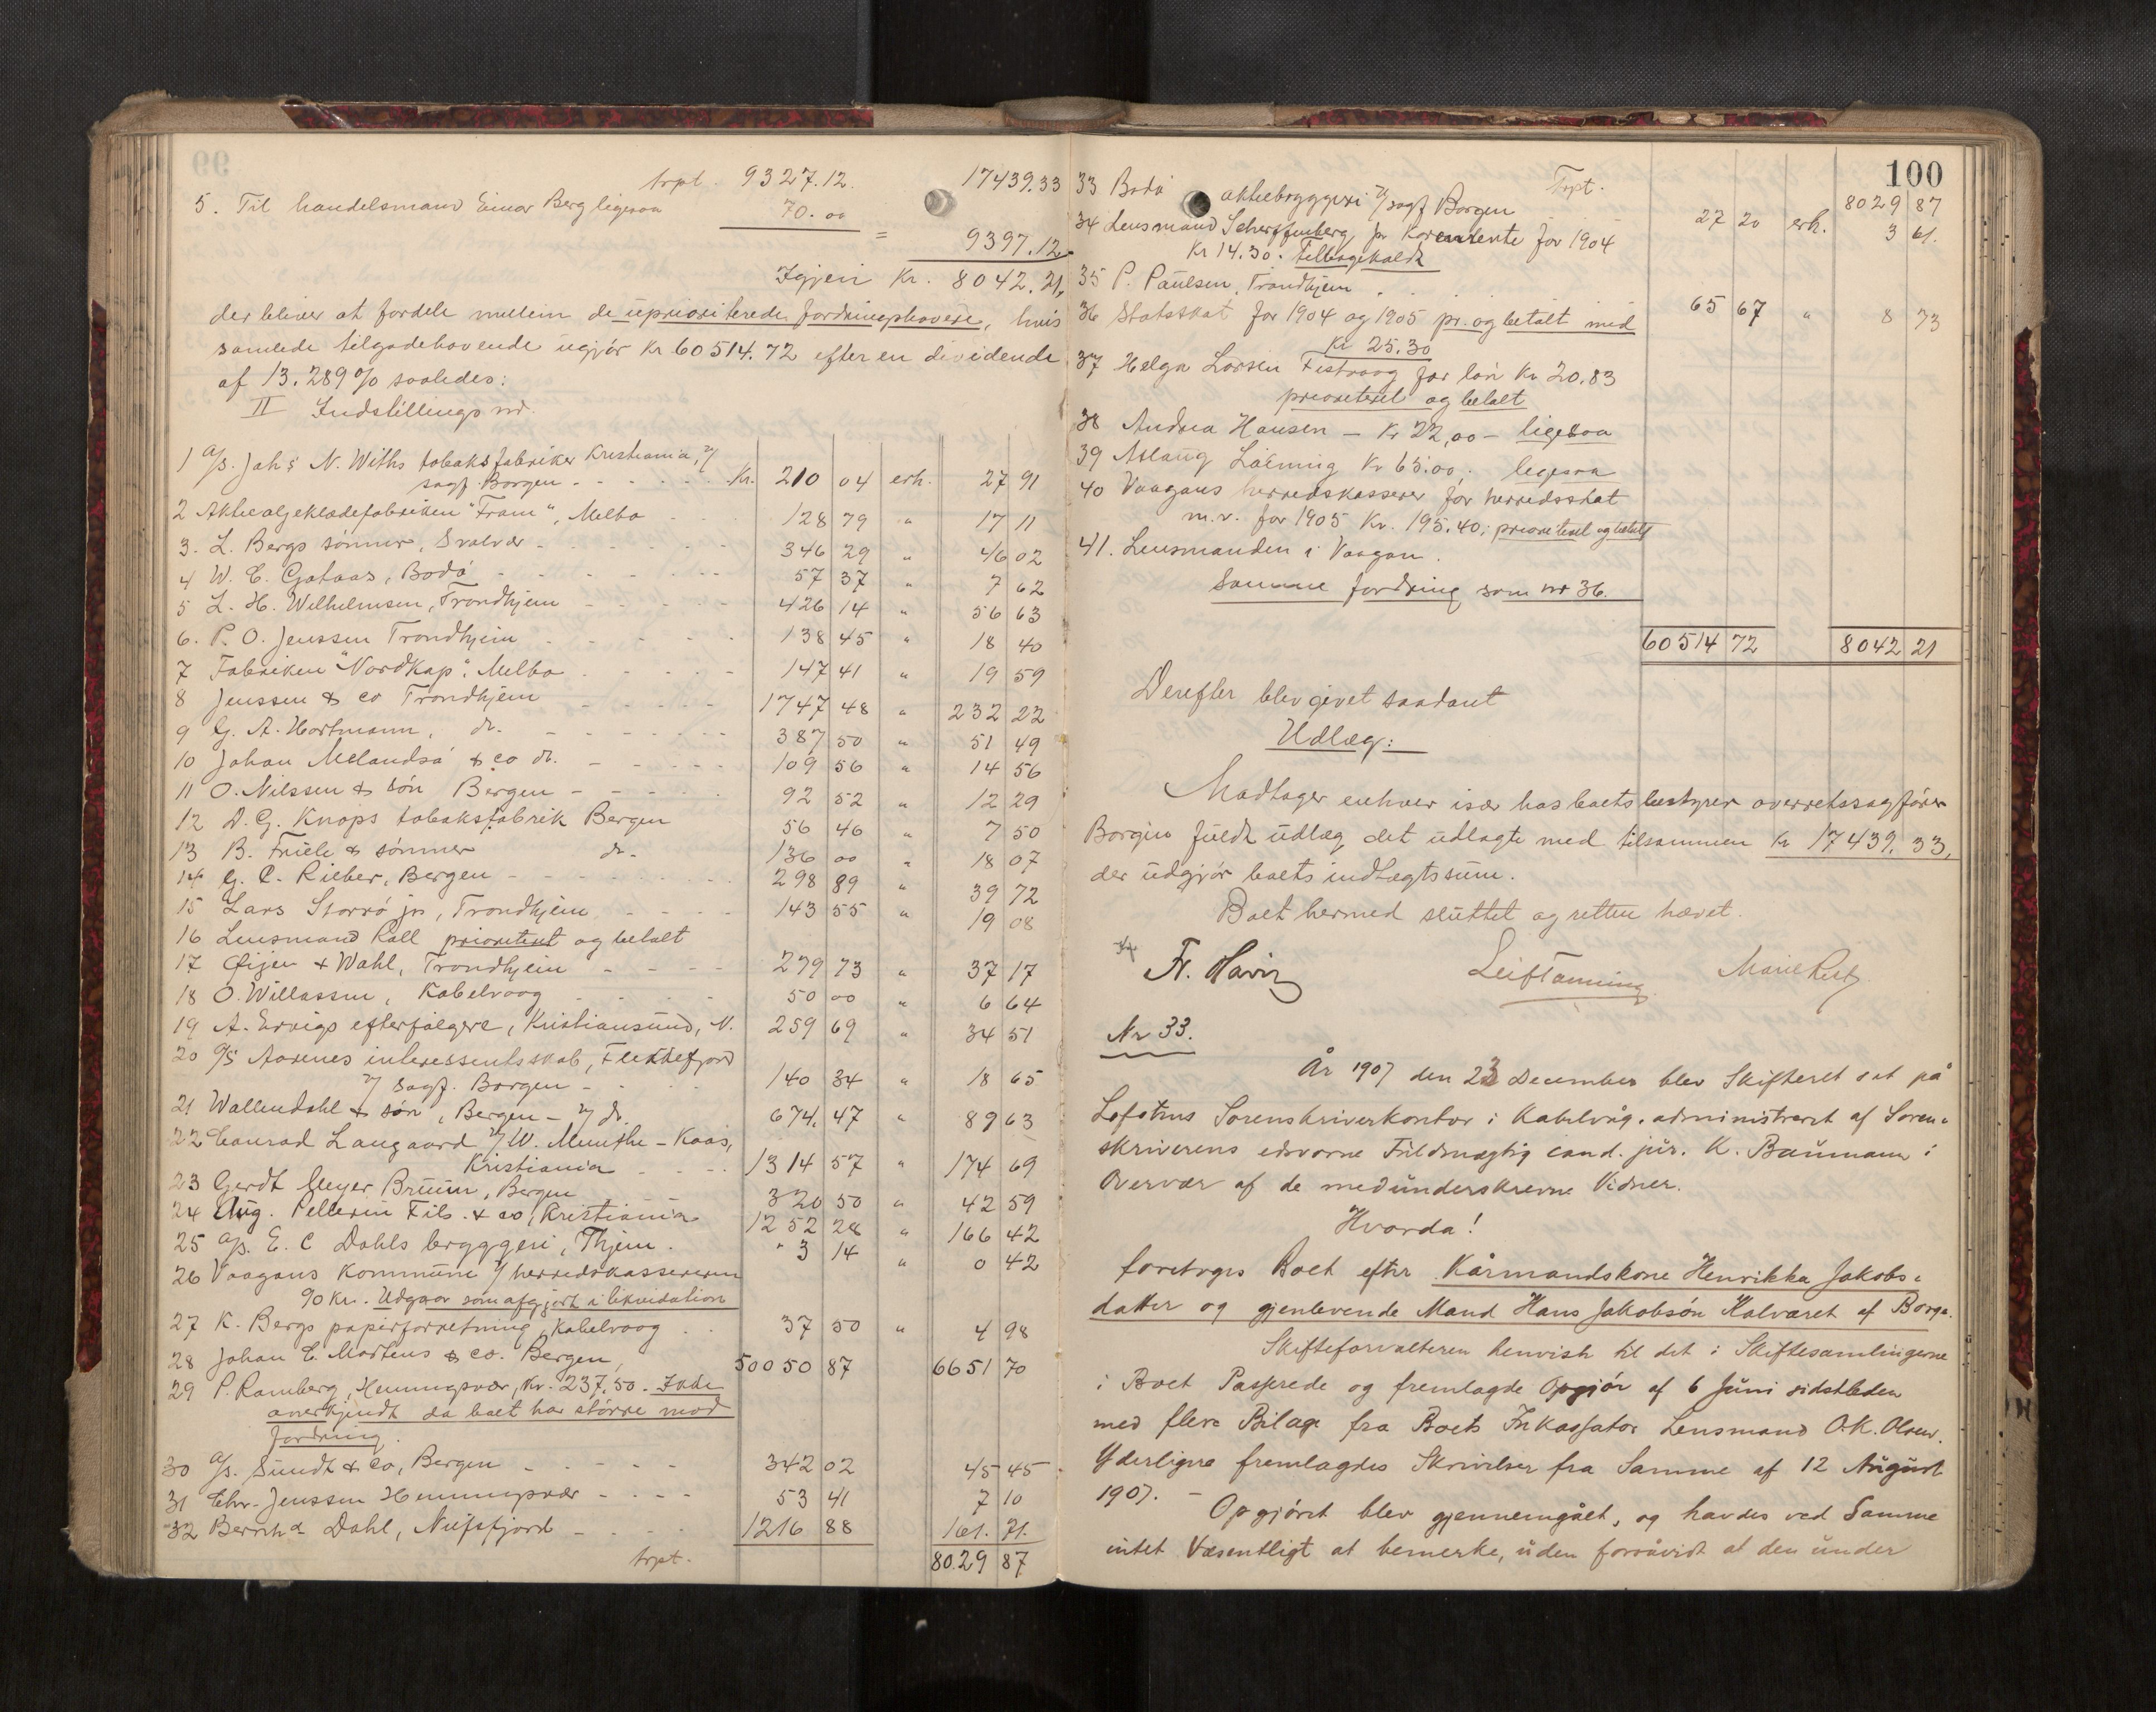 trpt. 9327.12. 17439.33
5. Til handelsmand Einar Berg ligesaa 70.00
= 9397.12
Igjen Kr. 8042.21,
der bliver at fordele mellem de uprioriterede fordringshavere, hvis
samlede tilgodehavende ugjör Kr 60514.72 efter en dividende
af 13.289 % saaledes:
II Indstillings nr.
1 A/s. Joh's N. Withs tobaksfabriker Kristiania, v/
sagf. Borgen - - - Kr. 210 04 erh. 27 91
2 Aktieoljeklædefabriken "Fram", Melbo 128 79 " 17 11
3. L. Bergs sönner, Svolvær - 346 29 " 46 02
4 W. C. Gotaas, Bodö - - - 57 37 " 7 62
5 L. H. Wilhelmsen, Trondhjem 426 14 " 56 63
6. P. O. Jenssen Trondhjem 138 45 " 18 40
7 Fabriken "Nordkap". Melbo 147 41 " 19 59
8 Jenssen & co Trondhjem 1747 48 " 232 22
9 G. A. Hartmann, do. 387 50 " 51 49
10 Johan Melandsö & co do. 109 56 " 14 56
11 O. Nilssen & sön Bergen 92 52 " 12 29
12 D. G. Knops tobaksfabrik Bergen 56 46 " 7 50
13 B. Friele & sönner do. 136 00 " 18 07
14 G. C. Rieber, Bergen 298 89 " 39 72
15 Lars Storrö jr, Trondhjem 143 55 " 19 08
16 Lensmand Roll prioriteret og betalt
17 Öijen & Wahl, Trondhjem 279 73 " 37 17
18 O. Willassen, Kabelvaag 50 00 " 6 64
19 A. Ervigs efterfölgere, Kristiansund, N. 259 69 " 34 51
20 A/S Aarenes interessentsskab, Flekkefjord
v/ sagf. Borgen - 140 34 " 18 65
21 Wallendahl & sön, Bergen - v/ do. 674. 47 " 89 63
22 Conrad Langaard v/ W. Munthe - Kaas,
Kristiania 1314 57 " 174 69
23 Gerdt Meyer Bruun, Bergen 320 50 " 42 59
24 Aug. Pellerin Fils. & co, Kristiania 1252 28 " 166 42
25 A/s. E. C Dahls bryggeri, Thjem. " 3 14 " 0 42
26 Vaagans Kommune v/ herredskassereren
90 Kr. Udgaar som afgjort i likvidation
27 K. Bergs papirforretning, Kabelvaag 37 50 " 4 98
28 Johan C. Martens & co. Bergen, 50050 87 6651 70
29 P. Ramberg, Henningsvær, Kr. 237.50. Ikke
anerkjendt da boet har större mod
fordring.
30 A/s. Sundt & Co, Bergen 342 02 45 45
31 Chr. Jenssen Henningsvær 53 41 7 10
32 Bernh. Dahl, Nufsfjord 1216 88 161. 71.
trpt. 8029 87
100
33 Bodö aktiebryggeri v/ sagf Borgen Trpt. 8029 87
27 20 erh. 3 61.
34 Lensmand Scherffenberg for 1904
Kr 14.30. Tilbagekaldt
35 P. Paulsen, Trondhjem 65 67 " 8 73
36 Statsskat for 1904 og 1905 pr. og betalt med
Kr 25.30
37 Helga Larsen Festvaag for lön Kr 20.83
prioriteret og betalt
38 Andrea Hansen - Kr 22,00 - ligesaa
39 Aslaug Kr 65.00. ligesaa
40 Vaagans herredskasserer for herredsskat
m.v. for 1905 Kr. 195.40; prioriteret og betalt
41. Lensmanden i Vaagan.
Samme fordring som nr 36.
60514 72 8042 21
Derefter blev givet saadant
Udlæg:
Modtager enhver især hos boets bestyrer overretssagförer
Borgen fuldt udlæg det udlagte med tilsammen Kr 17439. 33,
der udgjör boets indtægtssum.
Boet hermed sluttet og retten hævet.
Leif Tanning
Nr 33.
År 1907 den 23 December blev Skifteret sat på
Lofotens Sorenskriverkontor i Kabelvåg, administreret af Soren-
skriverens edsvorne Fuldmægtig cand. jur. K. Baumann i
Overvær af de medunderskrevne Vidner.
Hvorda!
foretoges Boet efter Kårmandskone Henrikka Jakobs-
datter og gjenlevende Mand Hans Jakobsön Kalværet af Borge.
Skifteforvalteren henviste til det i Skiftesamlingerne
i Boet Passerede og fremlagde Opgjör af 6 Juni sidstleden
med flere Bilage fra Boets Inkassator Lensmand O.K. Olsen.
Yderligere fremlagdes Skrivelser fra Samme af 12 August
1907. -
Opgjöret blev gjennemgået, og havdes ved Samme
intet Væsentligt at bemerke, uden forsåvidt at den under